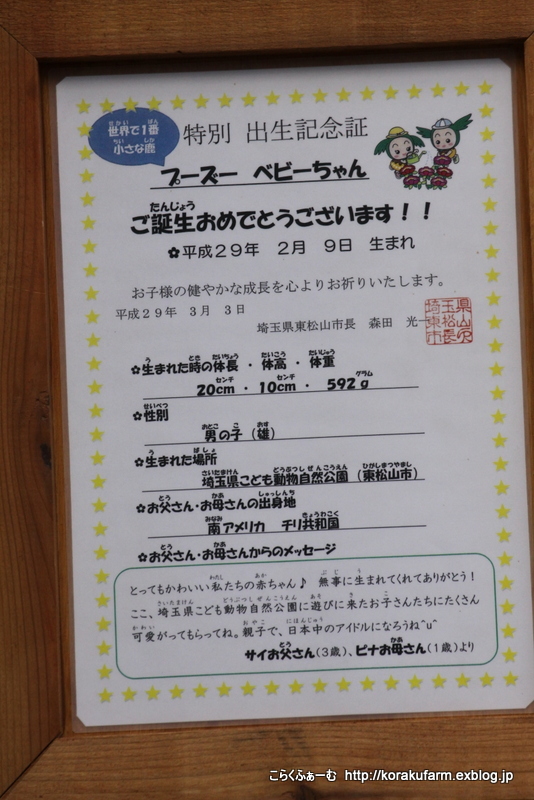 世界で1番
小さな鹿
特別 出生記念証
プーズー ベビーちゃん
ご誕生おめでとうございます！！
✿平成２９年 ２月 ９日 生まれ
お子様の健やかな成長を心よりお祈りいたします。
平成２９年 ３月 ３日
埼玉県東松山市長 森田 光一
✿生まれた時の体長・体高・体重
20cm・10cm・592g
✿性別
男の子（雄）
✿生まれた場所
埼玉県こども動物自然公園（東松山市）
✿お父さん・お母さんの出身地
南アメリカ チリ共和国
✿お父さん・お母さんからのメッセージ
とってもかわいい私たちの赤ちゃん♪ 無事に生まれてくれてありがとう！
ここ、埼玉県こども動物自然公園に遊びに来たお子さんたちにたくさん
可愛がってもらってね。親子で、日本中のアイドルになろうね^u^
サイお父さん（3歳）、ピナお母さん（1歳）より
こらくふぁーむ http://korakufarm.exblog.jp